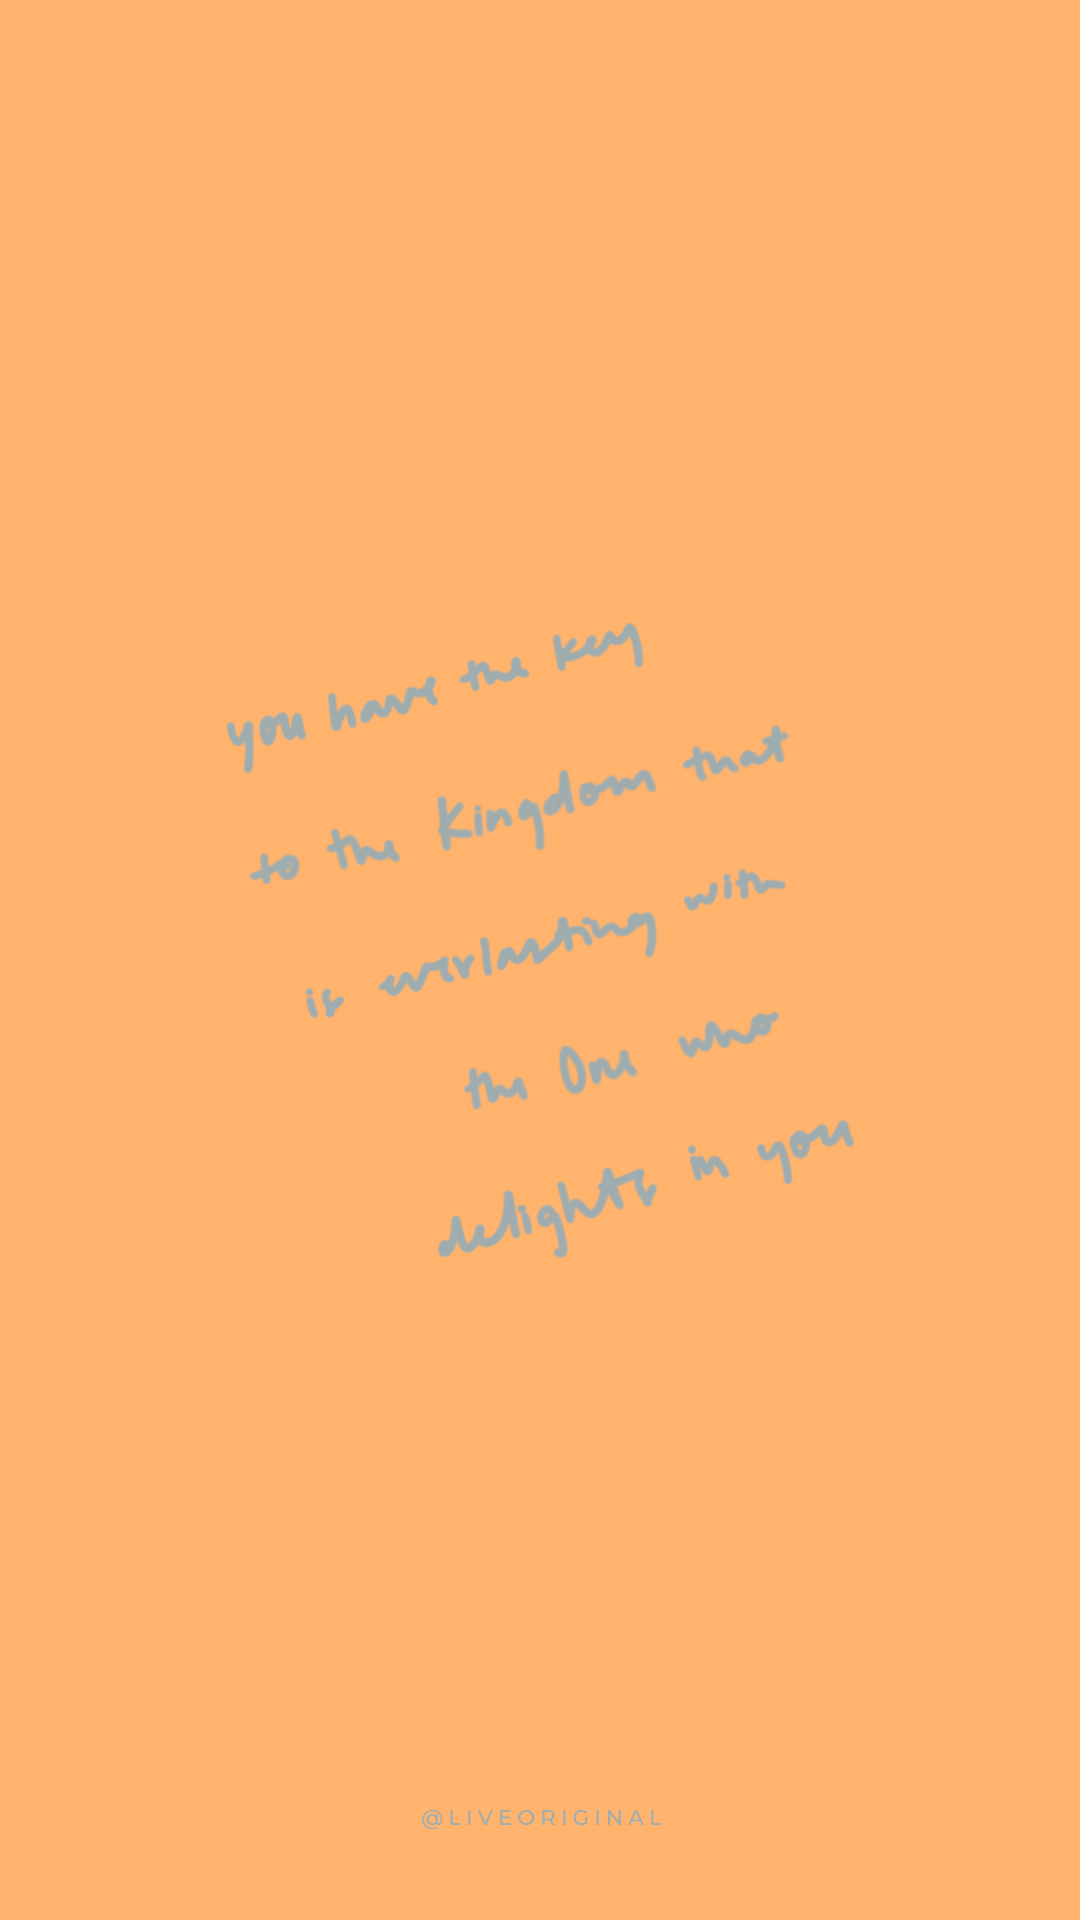 you have the key
to the Kingdom that
is everlasting with
the One who
delights in you
@LIVEORIGINAL